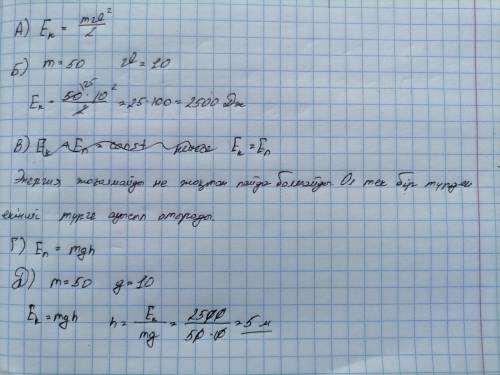 А) Eк = mϑ²/2
Б) m = 50 ϑ = 10
Eк = 50 · 10²/2 = 25 · 100 = 2500 Дж
В) Eк = Eп
Энергия жоғалмайды не жоқтан пайда болмайды. Ол тек бір түрден
екінші түрге ауысып отырады.
Г) Eп = mgh
Д) m = 50 g = 10
Eк = mgh h = Eк/mg = 2500/50 · 10 = 5 м